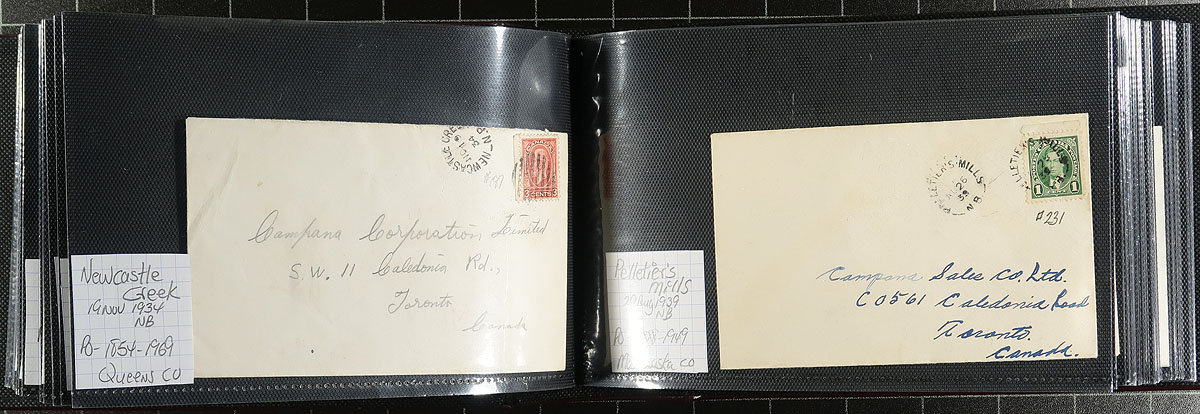 Newcastle
Creek
19 NOV 1934
NB
PO - 1854-1969
Queens CO
NEWCASTLE CREE
NO 19
34
N.B.
CANADA
3 CENTS 3
Campana Corporation Limited
S.W. 11 Caledonia Rd.,
Toronto
Canada
Pelletier's
Mills
1939
NB
-1969
CO
PELLETIER'S MILLS
26
39
N.B.
1 1
#231
Campana Sales Co. Ltd.
CO561 Caledonia Road
Toronto.
Canada.